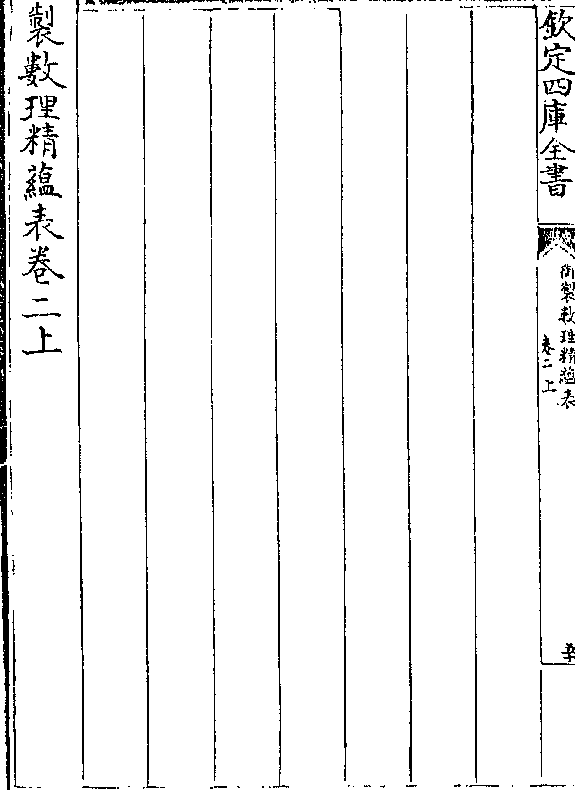 欽定四庫全書
御製數理精蘊表
卷二上
製數理精蘊表卷二上